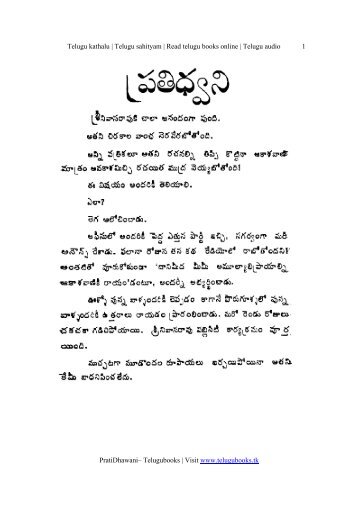 Telugu kathalu | Telugu sahityam | Read telugu books online | Telugu audio 1
ప్రతిధ్వని
శ్రీనివాసరావుకి చాలా ఆనందంగా వుంది.
అతని చిరకాల వాంఛ నెరవేరబోతోంది.
అన్ని పత్రికలూ అతని రచనల్ని తిప్పి కొట్టినా ఆకాశవాణి
మాత్రం అవకాశమిచ్చి రచయిత ముద్ర వెయ్యబోతోంది!
ఈ విషయం అందరికీ తెలియాలి.
ఎలా?
తెగ ఆలోచించాడు.
ఆఫీసులో అందరికీ పెద్ద ఎత్తున పార్టీ ఇచ్చి, సగర్వంగా మరీ
ఎనౌన్స్ చేశాడు. ఫలానా రోజున తన కథ రేడియోలో రాబోతోందని!
అంతటితో వూరుకోకుండా 'దానిమీద మీమీ అమూల్యాభిప్రాయాల్ని
ఆకాశవాణికీ రాయం'డంటూ, అందర్నీ అభ్యర్థించాడు.
ఊళ్ళో వున్న వాళ్ళందరికీ చెప్పడం కాగానే పొరుగూళ్ళలో వున్న
వాళ్ళందరికీ ఉత్తరాలు రాయడం ప్రారంభించాడు. మరో రెండు రోజులు
చకచకా గడిచిపోయాయి. శ్రీనివాసరావు పబ్లిసిటీ కార్యక్రమం పూర్త
యింది.
ముచ్చటగా మూడొందల రూపాయలు ఖర్చయిపోయినా అతని
కేమీ బాధనిపించలేదు.
PratiDhawani– Telugubooks | Visit www.telugubooks.tk